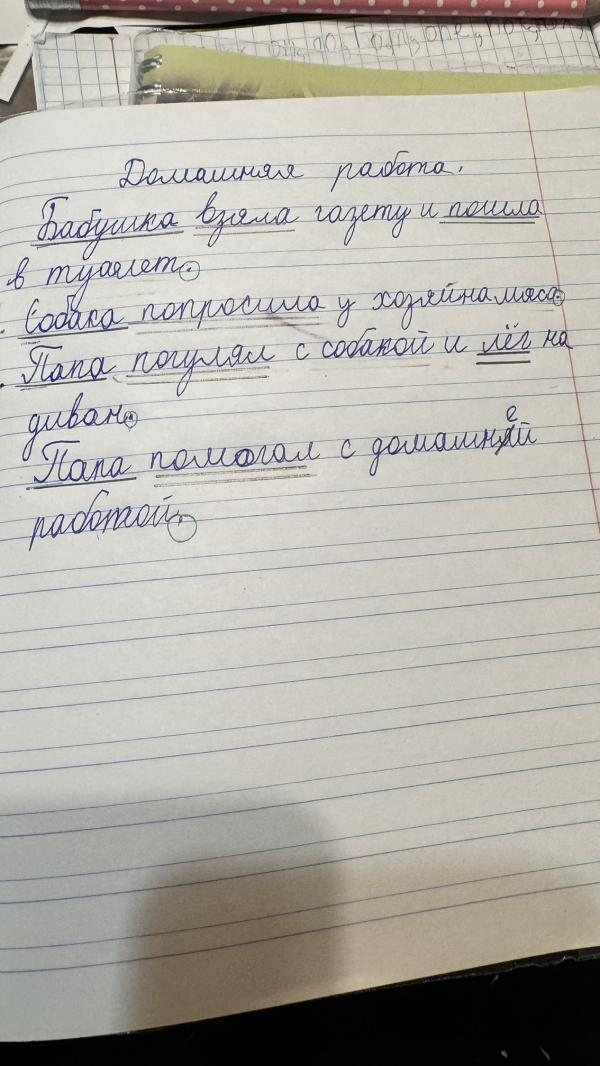 Домашняя работа.
Бабушка взяла газету и пошла
в туалет.
Собака попросила у хозяйна мяса.
Папа погулял с собакой и лёг на
диван.
Папа помогал с домашней
работой.